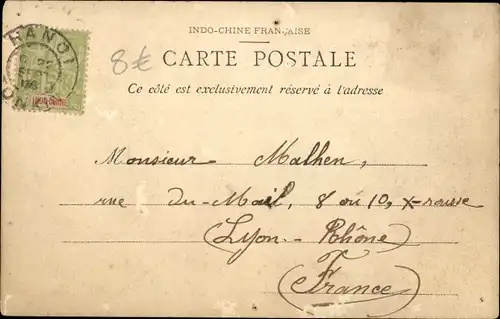 INDO-CHINE FRANÇAISE
HANOI
TONKIN
INDO-CHINE
8€
CARTE POSTALE
Ce côté est exclusivement réservé à l'adresse
Monsieur Malhen,
rue du-Mail, 8 ou 10, X-rousse
(Lyon.- Rhône)
(France)